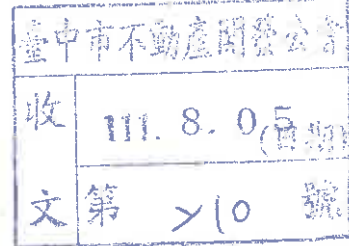 臺中市不動產開發公會
收 111. 8. 05 (日期)
文 第 210 號